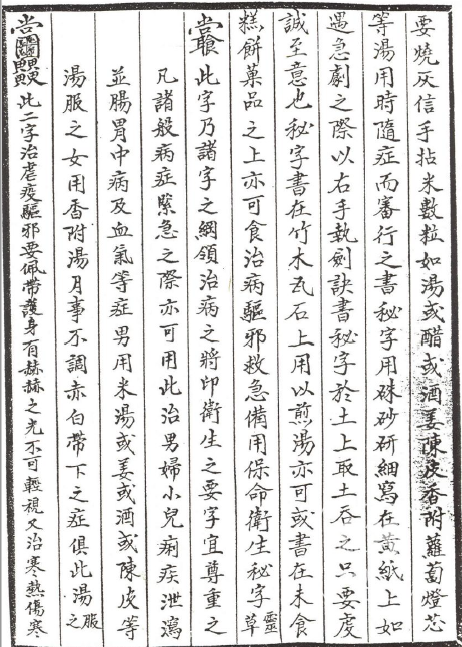 要燒灰信手拈米數粒如湯或醋或酒姜陳皮香附蘿蔔燈芯
等湯用時隨症而審行之書秘字用硃砂研細寫在黃紙上如
遇急劇之際以右手執劍訣書秘字於土上取土吞之只要虔
誠至意也秘字書在竹木瓦石上用以煎湯亦可或書在未食
糕餅菓品之上亦可食治病驅邪救急備用保命衛生秘字靈草
此字乃諸字之綱領治病之將印衛生之要字宜尊重之
凡諸般病症緊急之際亦可用此治男婦小兒痢疾泄瀉
並腸胃中病及血氣等症男用米湯或姜或酒或陳皮等
湯服之女用香附湯月事不調赤白帶下之症俱此湯服之
此二字治虐疫驅邪要佩帶護身有赫赫之光不可輕視又治寒熱傷寒